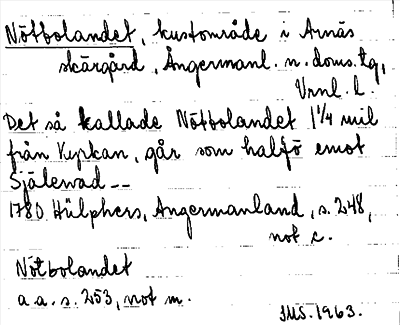 Nötbolandet, kustområde i Arnäs
skärgård, Ångermanl. n. doms. tg,
Vrnl. l.
Det så kallade Nötbolandet 1 1/4 mil
från Kyrkan, går som halfö emot
Själevad --
1780 Hülphers, Angermanland, s. 248,
not c.
Nötbolandet
a.a. s. 253, not m.
JMS. 1963.